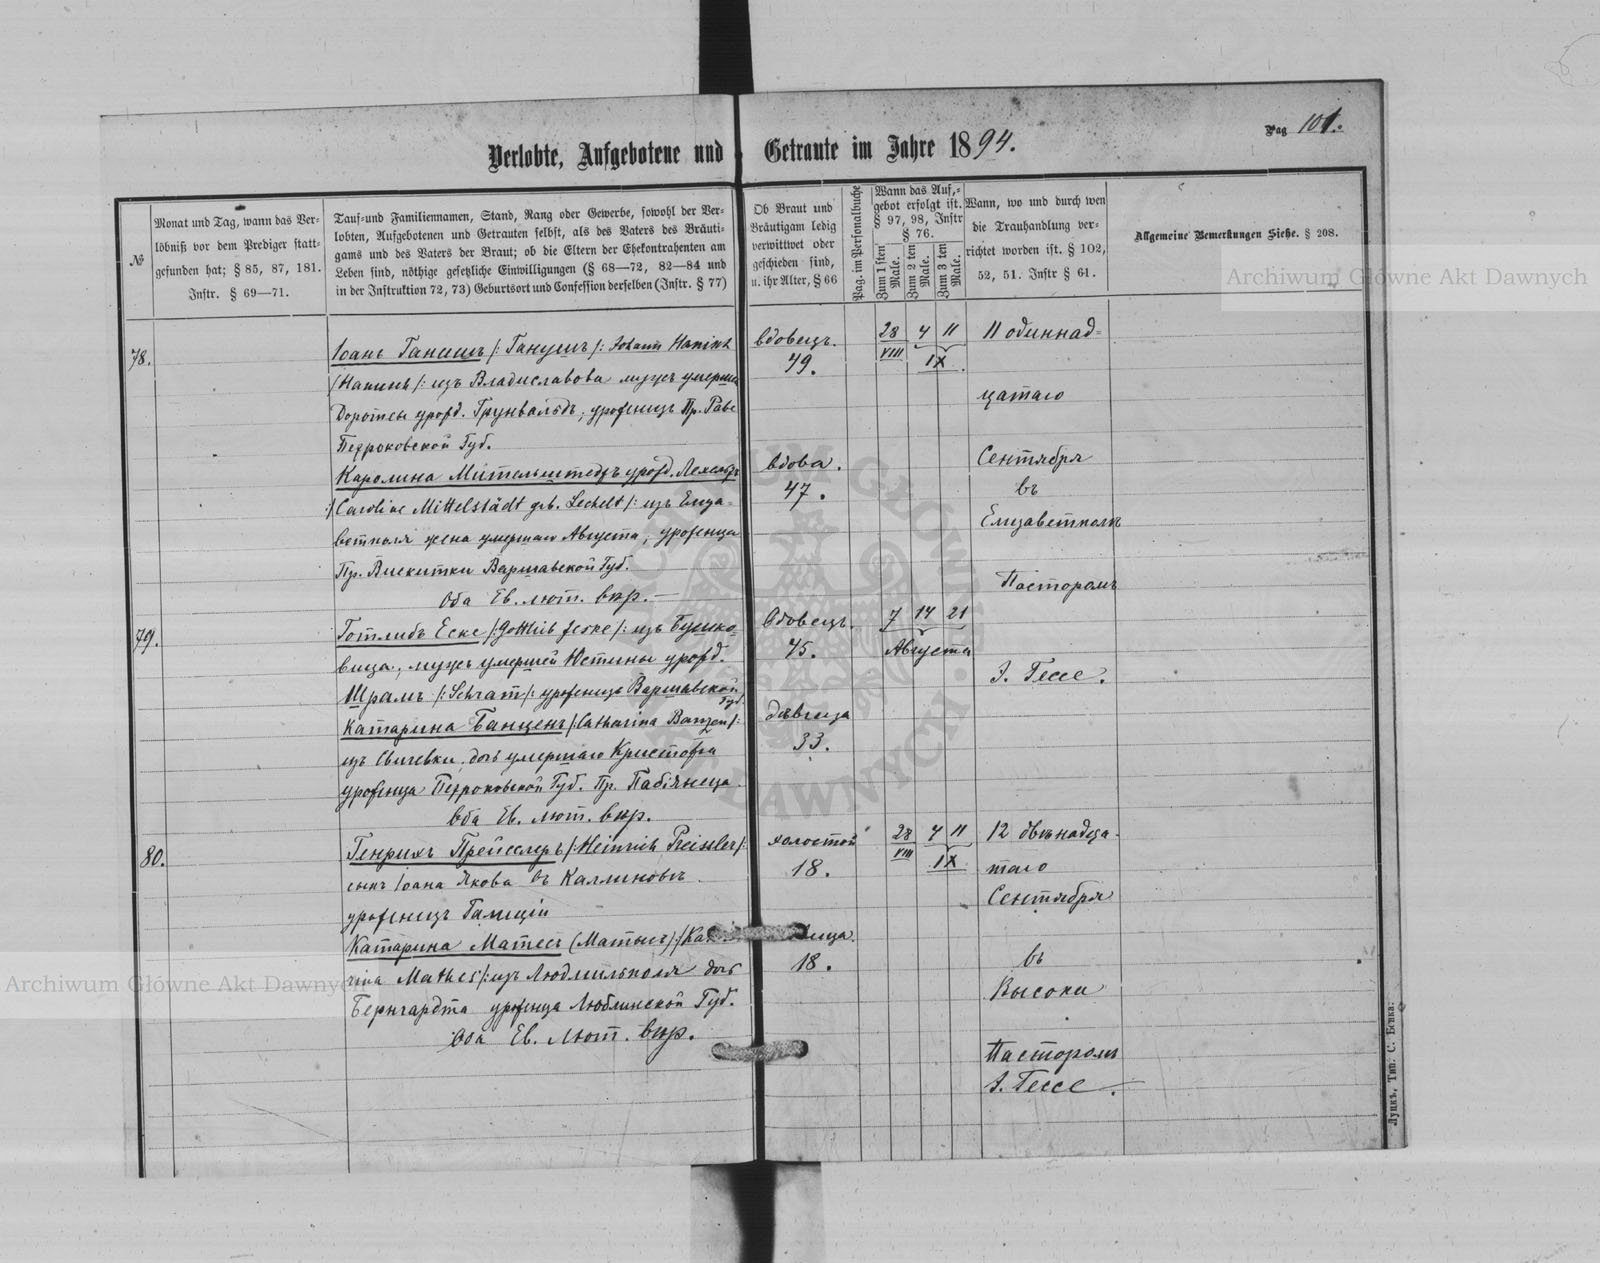 Verlobte, Aufgebotene und Getraute im Jahre 1894.
Pag 101.
№
Monat und Tag, wann das Ver-
löbniß vor dem Prediger statt-
gefunden hat; § 85, 87, 181.
Instr. § 69—71.
Tauf-und Familiennamen, Stand, Rang oder Gewerbe, sowohl der Ver-
lobten, Aufgebotenen und Getrauten selbst, als des Vaters des Bräuti-
gams und des Vaters der Braut; ob die Eltern der Ehekontrahenten am
Leben sind, nöthige gesetzliche Einwilligungen (§ 68—72, 82—84 und
in der Instruktion 72, 73) Geburtsort und Confession derselben (Instr. § 77)
Ob Braut und
Bräutigam ledig
verwittwet oder
geschieden sind,
u. ihr Alter, § 66
Pag. im Personalbuche
Wann das Auf-
gebot erfolgt ist.
§ 97, 98, Instr
§ 76.
Zum 1sten Male.
Zum 2 ten Male.
Zum 3 ten Male.
Wann, wo und durch wen
die Trauhandlung ver-
richtet worden ist. § 102,
52, 51. Instr § 61.
Allgemeine Bemerkungen Siehe. § 208.
78.
Іоанъ Ганишъ /: Ганушъ /: Johann
/: изъ Владиславова мужъ умершей
Доротеи урожд. Грунвальдъ, уроженецъ Пр. Раве
Петроковской Губ.
Каролина Мительштедтъ урожд. Лехельтъ
:/ Caroline Mittelstädt geb. Lechelt /: изъ Елиза-
ветполя жена умершаго Августа, уроженца
Пр. Вискитки Варшавской Губ.
Оба Ев. лют. вѣр. —
вдовецъ.
49.
вдова.
47.
28 4 11
VIII IX.
11 одиннад-
цатаго
Сентября
въ
Елизаветполѣ
Пасторомъ
І. Гессе.
79.
Готлибъ Еске /: Gottlieb Jeske /: изъ Бушко-
вица, мужъ умершей Юстины урожд.
Шрамъ /: Schram /: уроженецъ Варшавской
Губ.
Катарина Банценъ /: Catharina Banzen /:
изъ Свичевки, дочь умершаго Кристофа
уроженца Петроковской Губ. Пр. Пабіянеца.
Оба Ев. лют. вѣр.
Вдовецъ.
45.
дѣвица
33.
7 14 21
Августа
80.
Генрихъ Прейсслеръ /: Heinrich Preissler /:
сынъ Іоана Якова въ Каллиновѣ.
уроженецъ Галиціи
Катарина Матесъ (Матысъ) /: Ka
rina Mathes /: изъ Людмильполя дочь
Бернгардта уроженца Люблинской Губ.
Оба Ев. Лют. вѣр.
холостой
18.
ица.
18.
28 4 11
VIII IX
12 двѣнадца-
таго
Сентября
въ
Высоки
Пасторомъ
І. Гессе.
Луцкъ, Тип. С. Бѣнка.
Archiwum Główne Akt Dawnych
Archiwum Główne Akt Dawnych